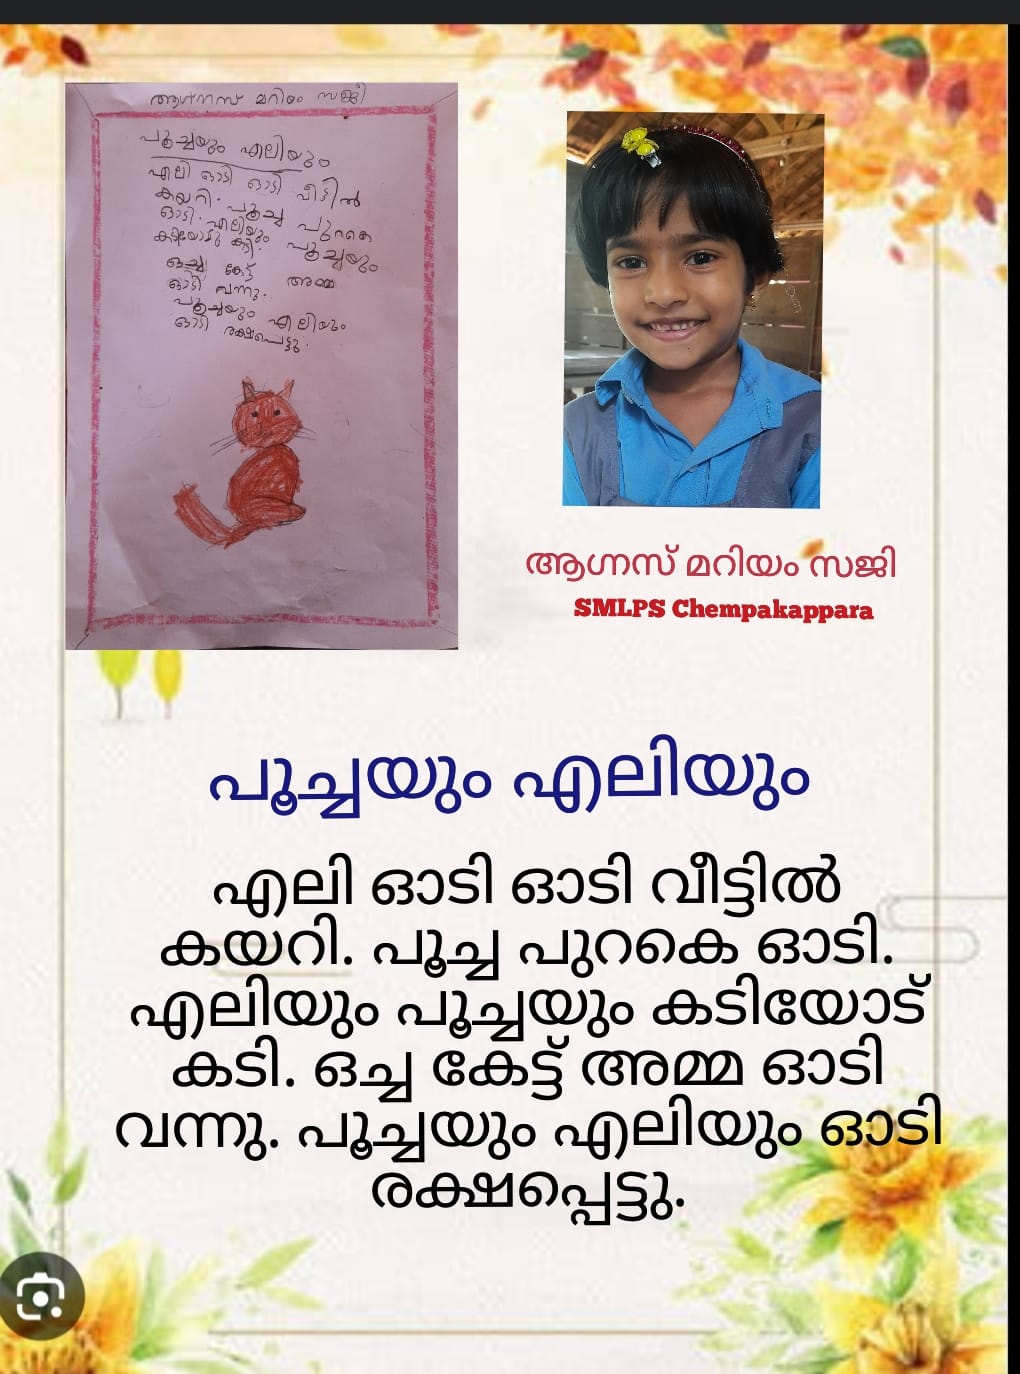 ആഗ്നസ് മറിയം സജി
പൂച്ചയും എലിയും
എലി ഓടി ഓടി വീട്ടിൽ
കയറി. പൂച്ച പുറകെ
ഓടി. എലിയും പൂച്ചയും
കടിയോടു കടി.
ഒച്ച കേട്ട് അമ്മ
ഓടി വന്നു.
പൂച്ചയും എലിയും
ഓടി രക്ഷപെട്ടു.
ആഗ്നസ് മറിയം സജി
SMLPS Chempakappara
പൂച്ചയും എലിയും
എലി ഓടി ഓടി വീട്ടിൽ
കയറി. പൂച്ച പുറകെ ഓടി.
എലിയും പൂച്ചയും കടിയോട്
കടി. ഒച്ച കേട്ട് അമ്മ ഓടി
വന്നു. പൂച്ചയും എലിയും ഓടി
രക്ഷപ്പെട്ടു.